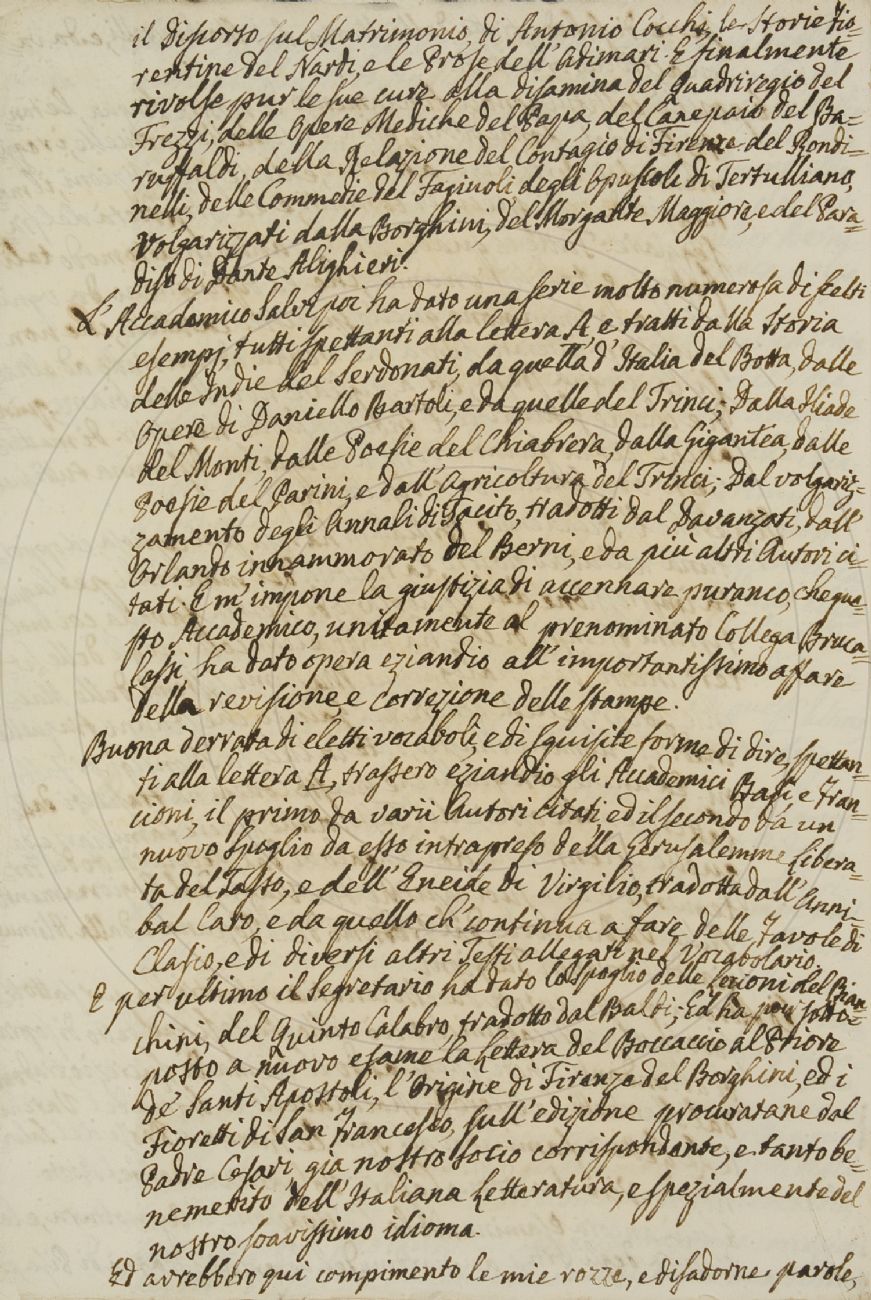 il Discorso sul Matrimonio, di Antonio Cocchi, le Storie Fio-
rentine del Nardi, e le Prose dell'Adimari. E finalmente
rivolse pur le sue cure alla disamina del Quadriregio del
Frezzi, delle Opere Mediche del Papa, del Canepaio del Ba-
ruffaldi, della Relazione del Contagio di Firenze del Rondi-
nelli, delle Commedie del Fagiuoli, degli Opuscoli di Tertulliano,
Volgarizzati dalla Borghini, del Morgante Maggiore, e del Para-
diso di Dante Alighieri.
L'Accademico Salvi poi ha dato una serie molto numerosa di scelti
esempj, tutti spettanti alla lettera A, e tratti dalla Storia
delle Indie del Serdonati, da quella d'Italia del Botta, dalle
Opere di Daniello Bartoli, e da quelle del Trinci; Dalla Iliade
del Monti, dalle Poesie del Chiabrera, dalla Gigantea, dalle
Poesie del Parini, e dall'Agricoltura del Trinci; Dal volgariz-
zamento degli Annali di Tacito, tradotti dal Davanzati, dall'
Orlando innammorato del Berni, e da più altri Autori ci-
tati. E m'impone la giustizia di accennare puranco, che que-
sto Accademico, unitamente al prenominato Collega Bruca-
lassi, ha dato opera eziandio all'importantissimo affare
della revisione, e correzione delle stampe.
Buona derrata di eletti vocaboli, e di squisite forme di dire, spettan-
ti alla lettera A, trassero eziandio gli Accademici Basi, e Fran-
cioni, il primo da varii Autori citati, ed il secondo da un
nuovo spoglio da esso intrapreso della Gerusalemme Libera-
ta del Tasso, e dell'Eneide di Virgilio, tradotta dall'Anni-
bal Caro, e da quello ch'continua a fare delle Favole di
Clasio, e di diversi altri Testi allegati nel Vocabolario.
E per ultimo il Segretario ha dato lo spoglio delle Lezioni del Bian-
chini, del Quinto Calabro, tradotto dal Baldi; Ed ha poi sotto-
posto a nuovo esame la Lettera del Boccaccio al Priore
de' Santi Apostoli, l'Origine di Firenze del Borghini, ed i
Fioretti di San Francesco, sull'edizione procuratane dal
Padre Cesari, già nostro socio corrispondente, e tanto be-
nemerito dell'Italiana Letteratura, e spezialmente del
nostro soavissimo idioma.
Ed avrebbero qui compimento le mie rozze, e disadorne parole,